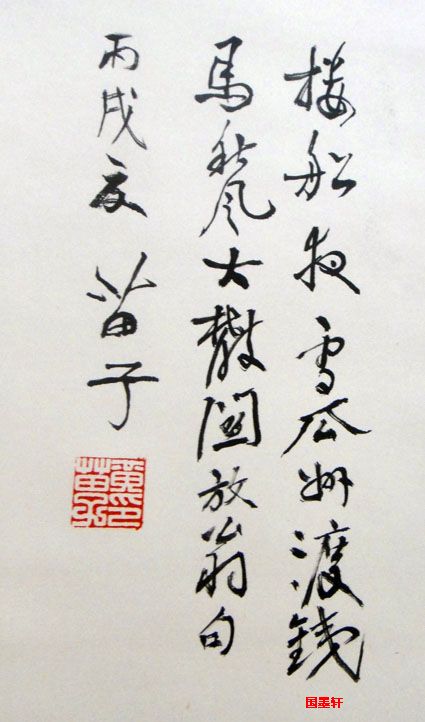 楼船夜雪瓜州渡鐵
馬秋风大散關放翁句
丙戌夏 苗子
国墨轩